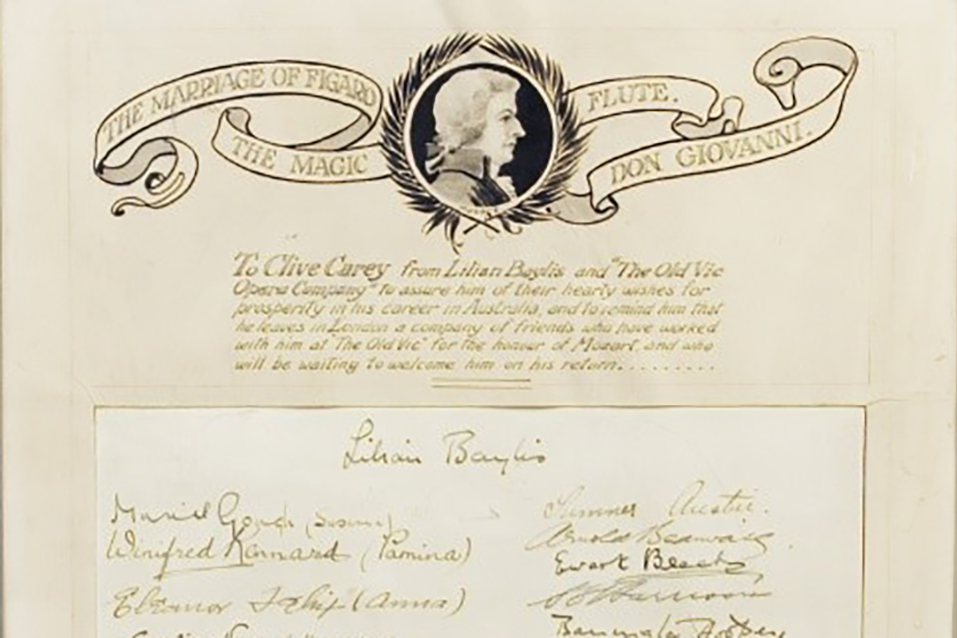 THE MARRIAGE OF FIGARO
THE MAGIC FLUTE.
DON GIOVANNI.
To Clive Carey from Lilian Baylis and "The Old Vic
Opera Company" to assure him of their hearty wishes for
prosperity in his career in Australia, and to remind him that
he leaves in London a company of friends who have worked
with him at "The Old Vic" for the honour of Mozart, and who
will be waiting to welcome him on his return.........
Lilian Baylis
Muriel Gough (Susanna)
Sumner Austin.
Winifred Kennard (Pamina)
Arnold
Ewart
Eleanor (Anna)